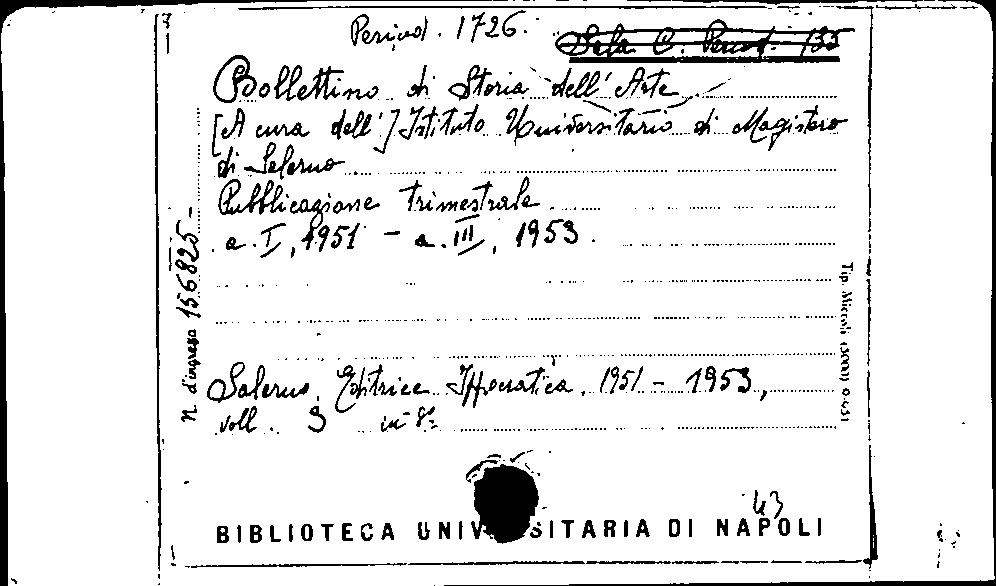 Period. 1726.
Sala C. Period. 135
Bollettino di Storia dell'Arte
[A cura dell'] Istituto Universitario di Magistero
di Salerno
Pubblicazione trimestrale
a. I, 1951 - a. III, 1953.
N. d'ingresso 156825-
Salerno, Editrice Ippocratica, 1951 - 1953,
voll. 3 in 8º
Tip. Miccoli
43
BIBLIOTECA UNIVERSITARIA DI NAPOLI